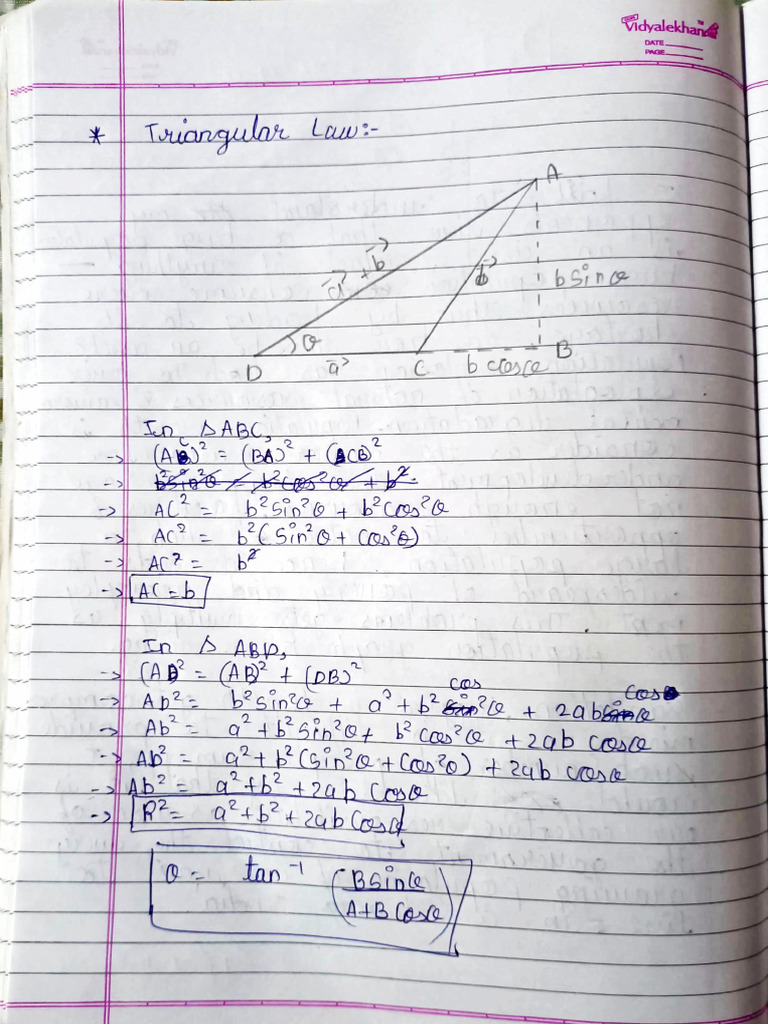 Vidyalekhan
DATE
PAGE
* Triangular Law:-
A
a⃗ + b⃗
b⃗
b sinθ
θ
D
a⃗
C
b cosθ
B
In ΔABC,
→ (AC)² = (BA)² + (CB)²
→ b²sin²θ = b²cos²θ + b².
→ AC² = b²sin²θ + b²cos²θ
→ AC² = b²(sin²θ + cos²θ)
→ AC² = b²
→ AC = b
In Δ ABD,
→ (AD)² = (AB)² + (DB)²
→ AD² = b²sin²θ + a² + b² cos²θ + 2ab cosθ
→ AD² = a² + b²sin²θ + b²cos²θ + 2ab cosθ
→ AD² = a² + b²(sin²θ + cos²θ) + 2ab cosθ
→ AD² = a² + b² + 2ab cosθ
→ R² = a² + b² + 2ab cosθ
θ = tan⁻¹ (Bsinθ / A+B cosθ)